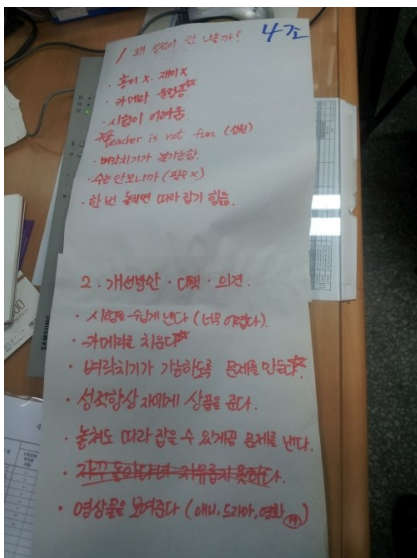 4조
1 왜 성적이 안 나올까?
· 흥미 X. 재미 X
· 카메라 울렁증☆
· 시험이 어려움
teacher is not fun
· 벼락치기가 불가능함.
· 수능 안보니까 (필요 X)
· 한 번 놓치면 따라 잡기 힘듦.
2. 개선방안 · 대책 · 의견.
· 시험을 쉽게 낸다 (너무 어렵다).
· 카메라를 치운다☆
· 벼락치기가 가능하도록 문제를 만든다☆
· 성적향상 자에게 상품을 준다.
· 놓쳐도 따라 잡을 수 있게끔 문제를 낸다.
· 영상물을 보여준다 (애니, 드라마, 영화